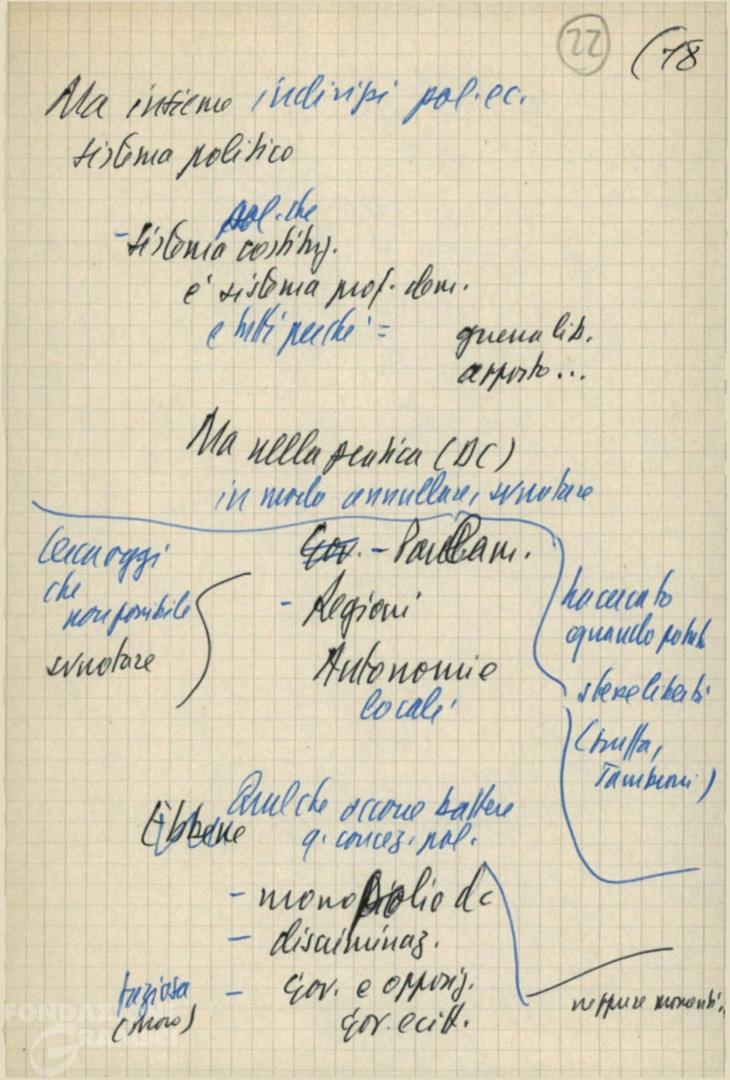 22 (18
Ma insieme indirizzi pol.ec.
sistema politico
pol. che
- sistema costituz.
è sistema prof. dem.
e tutti perché =
guerra lib.
apporto...
Ma nella pratica (DC)
in modo annullare, svuotare
Gov. - Parlam.
- Regioni
Autonomie
locali
Cerca oggi
che
non possibile
svuotare
ha cercato
quando potuto
stesse libertà
(truffa,
Tambroni)
Quel che occorre battere
Ebbene
q. concez. pol.
- monopolio dc
- discriminaz.
- Gov. e opposiz.
Gov. e citt.
faziosa
(Moro)
neppure
FONDAZIONE
GRAMSCI